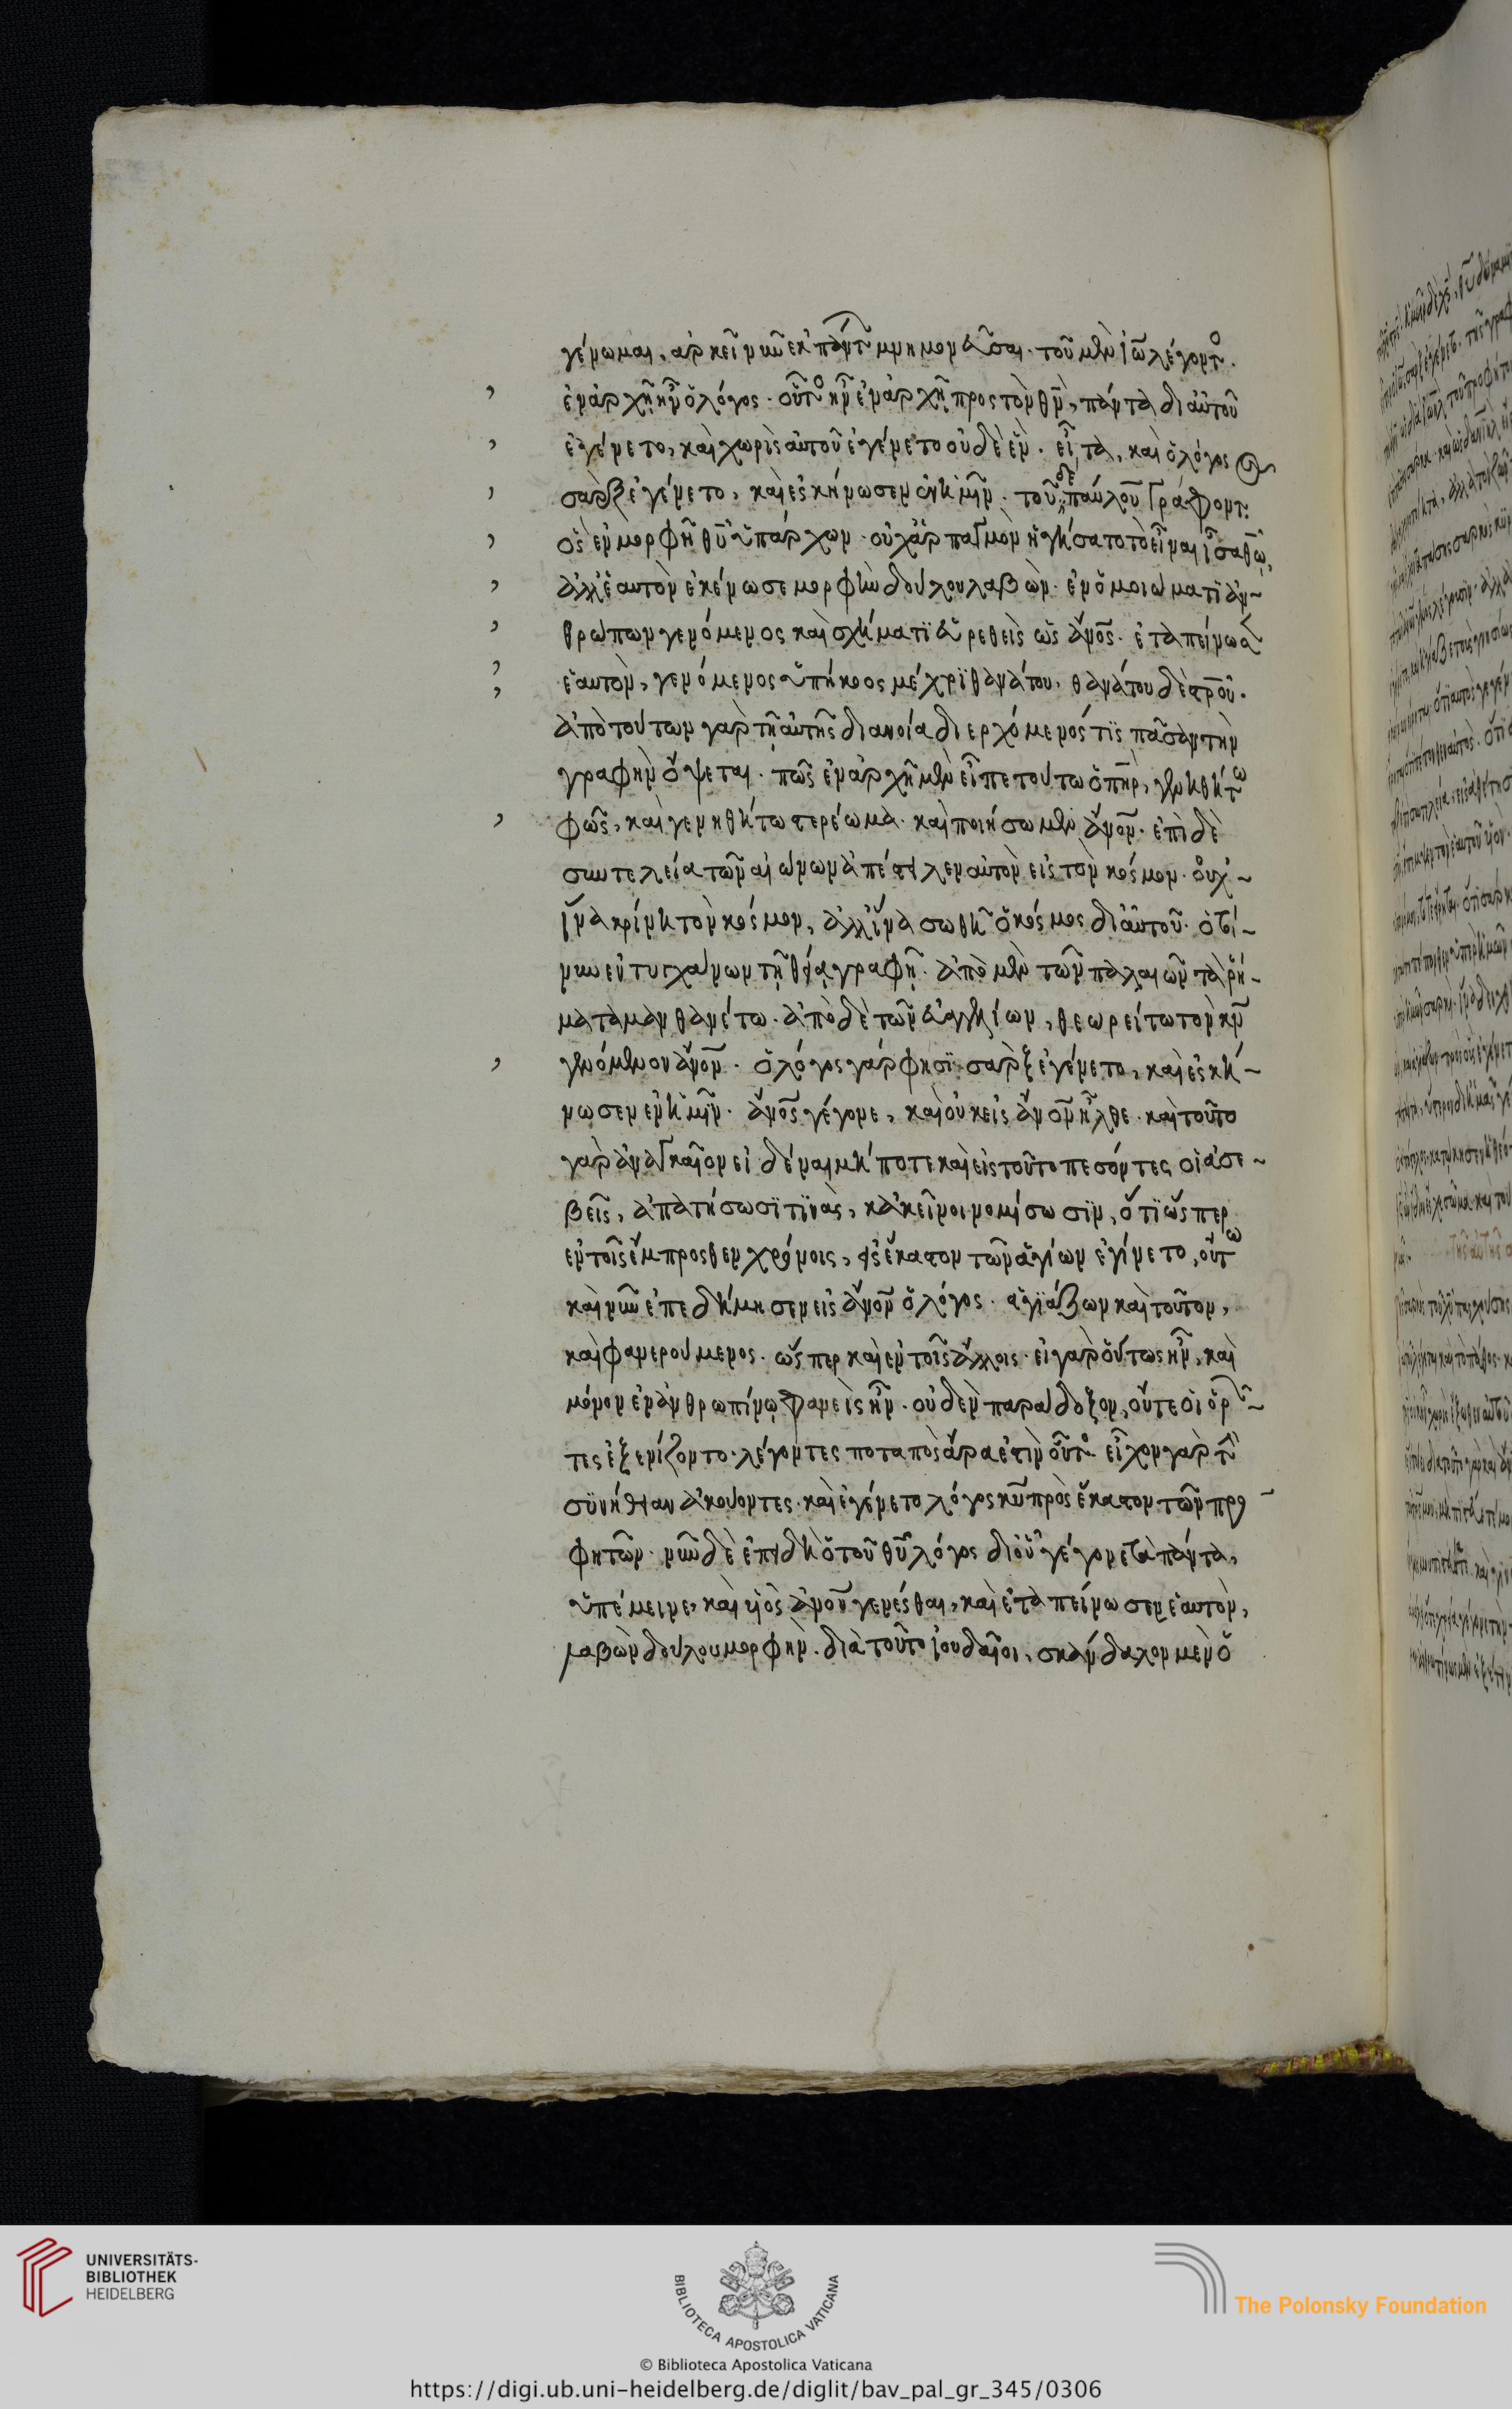 γένωμαι, ἀρκεῖ νῦν ἐκ πάντ μνημονεῦσαι· τοῦ μὲν ἰω λέγοντο·
ἐν ἀρχῆ ἦν ὁ λόγος· οὗτο ἦν ἐν ἀρχῆ προς τὸν θν, πάντα δι αὐτοῦ
ἐγένετο, καὶ χωρὶς αὐτοῦ ἐγένετο οὐδὲ ἕν· εἶτα, καὶ ὁ λόγος
σαρξ ἐγένετο, καὶ ἐσκήνωσεν ἐν ἡμῖν· τοῦ δὲ παύλου γράφοντ
ὃς ἐν μορφῆ θυ ὑπάρχων· οὐχ ἁρπαγμὸν ἡγήσατο τὸ εἶναι ἶσα θῶ,
ἀλλ' ἑαυτὸν ἐκένωσε μορφὴν δούλου λαβών· ἐν ὁμοιώματι ἀν~
θρώπων γενόμενος καὶ σχήματι εὑρεθεὶς ὡς ἄνος· ἐταπείνωσ
ἑαυτὸν, γενόμενος ὑπήκοος μέχρι θανάτου, θανάτου δὲ στροῦ·
ἀπὸ τούτων γαρ τῆ αὐτῆς διανοία διερχόμενός τις πᾶσαν τὴν
γραφὴν ὄψεται· πῶς ἐν ἀρχῆ μὲν εἶπε τούτω ὁ πηρ, γενηθήτω
φῶς, καὶ γενηθήτω στερέωμα· καὶ ποιήσωμεν ἄνον· ἐπὶ δὲ
συντελεία τῶν αἰώνων ἀπέστειλεν αὐτὸν εἰς τὸν κόσμον· οὐχ'~
ἵνα κρίνη τὸν κόσμον, ἀλλ' ἵνα σωθῆ ὁ κόσμος δι αὐτοῦ· ὁ τοί-
νυν ἐντυγχάνων τῆ θεία γραφῆ· ἀπὸ μὲν τῶν παλαιῶν τὰ ῥή-
ματα μανθανέτω· ἀπὸ δὲ τῶν εὐαγγελίων, θεωρείτω τὸν κν
γενόμενον ἄνον· ὁ λόγος γάρ φησι σαρξ ἐγένετο, καὶ ἐσκή~
νωσεν ἐν ἡμῖν· ἄνος γέγονε, καὶ οὐκ εἰς ἄνον ἦλθε· καὶ τοῦτο
γαρ ἀναγκαῖον εἰδέναι μήποτε καὶ εἰς τοῦτο πεσόντες οἱ ἀσε~
βεῖς, ἀπατήσωσι τινὰς, κἀκεῖνοι νομίσωσιν, ὅτι ὥσπερ
ἐν τοῖς ἔμπροσθεν χρόνοις, εἰς ἕκαστον τῶν ἁγίων ἐγίνετο, οὕτω
καὶ νῦν ἐπεδήμησεν εἰς ἄνον ὁ λόγος· ἁγιάζων καὶ τοῦτον,
καὶ φανερούμενος· ὥσπερ καὶ ἐν τοῖς ἄλλοις· εἰ γαρ οὕτως ἦν, καὶ
μόνον ἐν ἀνθρωπίνω φανεὶς ἦν· οὐδὲν παράδοξον, οὔτε οἱ ὁρ~
τες ἐξενίζοντο λέγοντες ποταπὸς ἄρα ἐστὶν οὗτο· εἶχον γαρ τὴν
συνήθειαν ἀκούοντες· καὶ ἐγένετο λόγος κυ πρὸς ἕκαστον τῶν προ~
φητῶν· νῦν δὲ ἐπειδὴ ὁ τοῦ θυ λόγος δι οὗ γέγονε τὰ πάντα,
ὑπέμεινε, καὶ υἱὸς ἀνου γενέσθαι, καὶ ἐταπείνωσεν ἑαυτὸν,
λαβὼν δούλου μορφήν· διὰ τοῦτο ἰουδαῖοι, σκάνδαλον μὲν ὁ
UNIVERSITÄTS-
BIBLIOTHEK
HEIDELBERG
BIBLIOTECA APOSTOLICA VATICANA
The Polonsky Foundation
© Biblioteca Apostolica Vaticana
https://digi.ub.uni-heidelberg.de/diglit/bav_pal_gr_345/0306